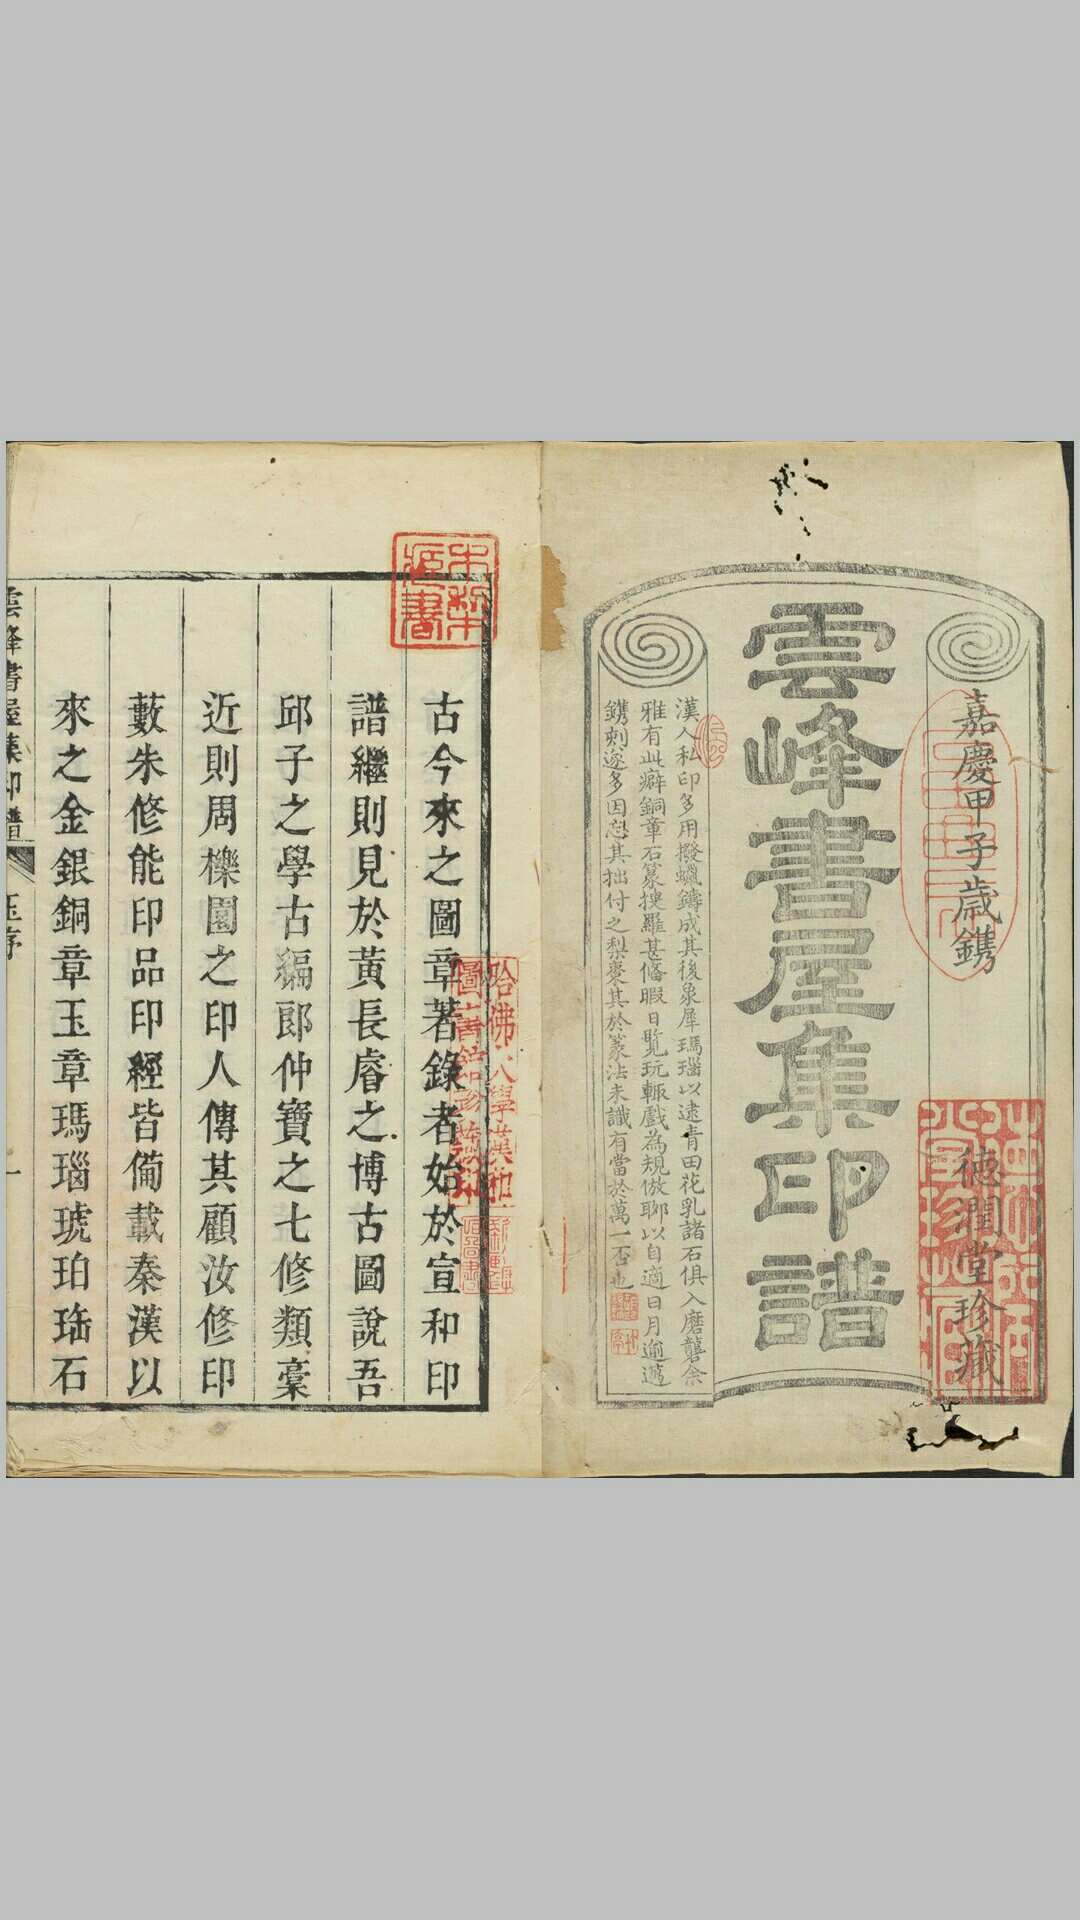 嘉慶甲子歲鐫
德潤堂珍藏
雲峰書屋集印譜
漢人私印多用撥蠟鑄成其後象犀瑪瑙以逮青田花乳諸石俱入磨礱余
雅有此癖銅章石篆搜羅甚僃暇日覽玩輒戲為規倣聊以自適日月逾邁
鐫刻遂多因忘其拙付之梨棗其於篆法未識有當於萬一否也
古今來之圖章著錄者始於宣和印
譜繼則見於黃長睿之博古圖說吾
邱子之學古編郎仲寶之七修類稾
近則周櫟園之印人傳其顧汝修印
藪朱修能印品印經皆僃載秦漢以
來之金銀銅章玉章瑪瑙琥珀珤石
雲峰書屋集印譜
序
一
哈佛大學漢和
圖書館珍藏印